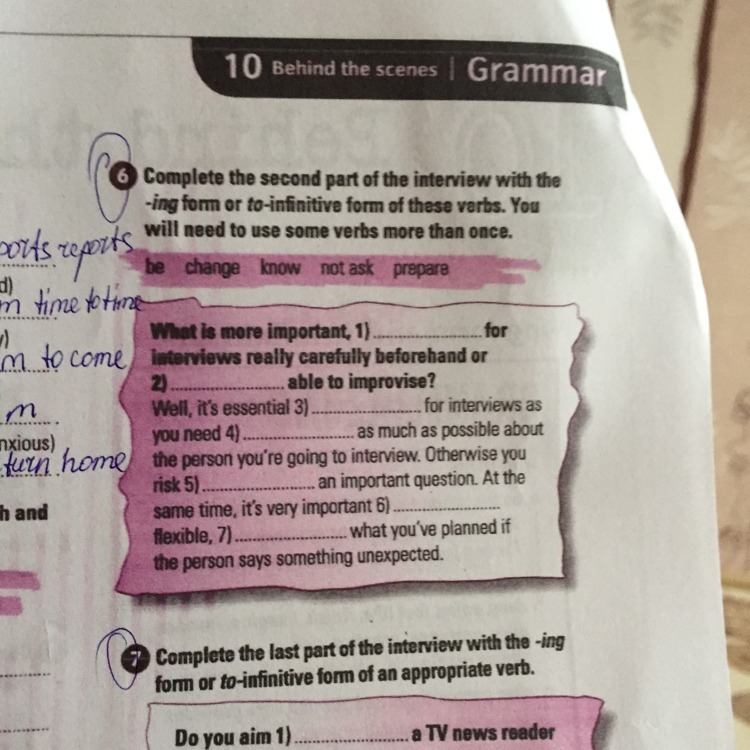 10 Behind the scenes | Grammar
6 Complete the second part of the interview with the
-ing form or to-infinitive form of these verbs. You
will need to use some verbs more than once.
be change know not ask prepare
What is more important, 1) .................... for
interviews really carefully beforehand or
2) .................... able to improvise?
Well, it's essential 3) .................... for interviews as
you need 4) .................... as much as possible about
the person you're going to interview. Otherwise you
risk 5) .................... an important question. At the
same time, it's very important 6) ....................
flexible, 7) .................... what you've planned if
the person says something unexpected.
7 Complete the last part of the interview with the -ing
form or to-infinitive form of an appropriate verb.
Do you aim 1) .................... a TV news reader
reports
d)
time to time
to come
nxious)
turn home
h and